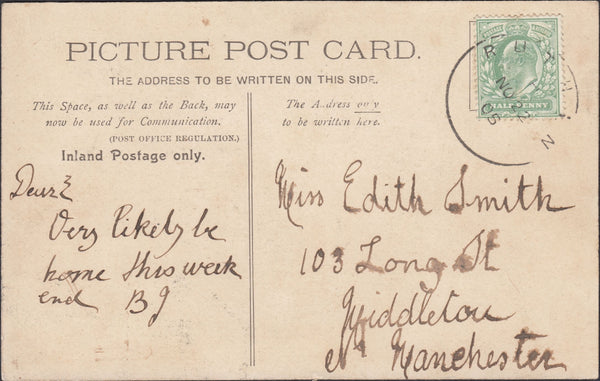 PICTURE POST CARD.
THE ADDRESS TO BE WRITTEN ON THIS SIDE.
This Space, as well as the Back, may
now be used for Communication.
(POST OFFICE REGULATION.)
Inland Postage only.
The Address only
to be written here.
Dear E
Very likely be
home this week
end BJ
Miss Edith Smith
103 Long St
Middleton
Nr Manchester
HALFPENNY
NO 2
05